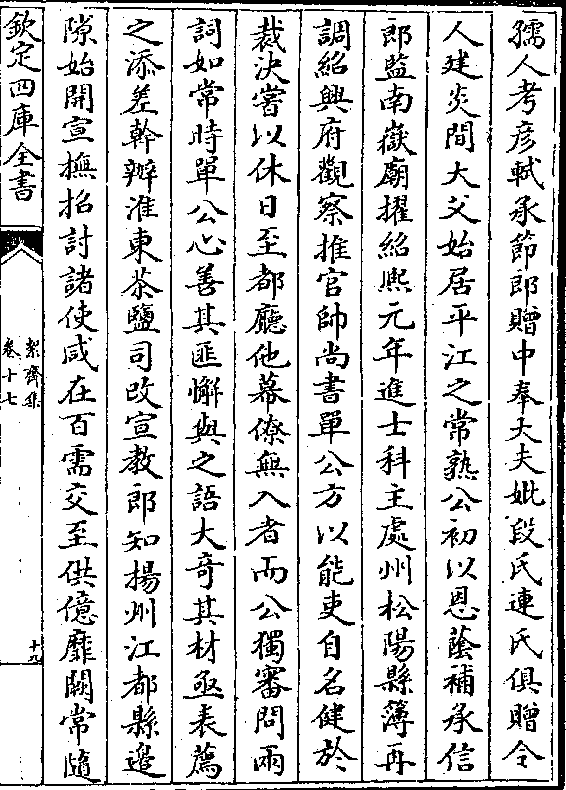 孺人考彦軾承節郎贈中奉大夫妣段氏連氏俱贈令
人建炎間大父始居平江之常熟公初以恩蔭補承信
郎監南嶽廟擢紹熙元年進士科主處州松陽縣簿再
調紹興府觀察推官帥尚書單公方以能吏自名健於
裁決嘗以休日至都廳他幕僚無入者而公獨審問兩
詞如常時單公心善其匪懈與之語大奇其材亟表薦
之添差幹辦淮東茶鹽司改宣教郎知揚州江都縣邊
隙始開宣撫招討諸使咸在百需交至供億靡闕常隨
欽定四庫全書
絜齋集
卷十七
十九